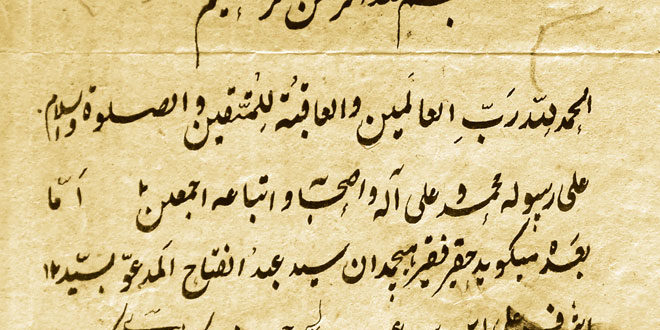 بسم الله الرحمن الرحیم
الحمد لله رَبِّ العالَمین والعاقبةُ لِلمُتّقین والصلوة والسلام
علی رسوله محمد و علی آله واصحابه واتباعه اجمعین اَمّا
بعد میکوید حقیر فقیر هیچمدان سید عبد الفتاح المدعوّ بسیّد